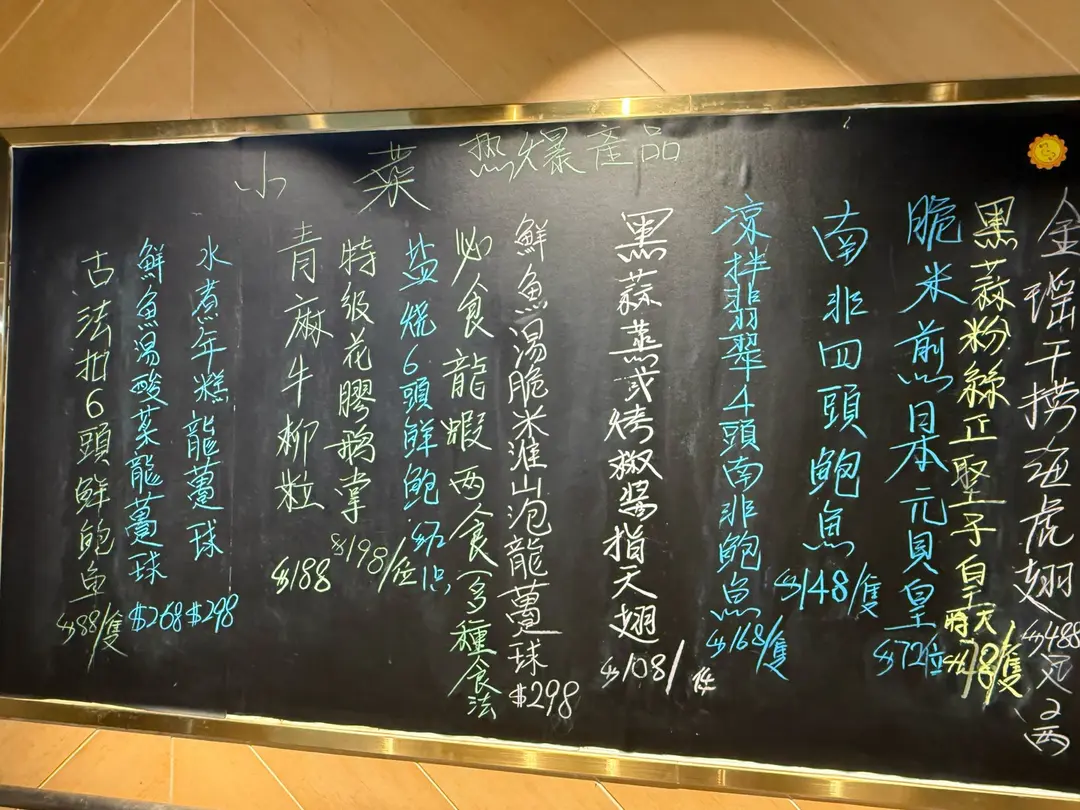 小菜 热爆產品
金瑤干撈海虎翅 $488 
黑蒜粉絲正堅子皇 時天 $78/隻
脆米煎日本元貝皇 $72位
南非四頭鮑魚 $148/隻
凉拌翡翠4頭南非鮑魚 $168/隻
黑蒜蒸或烤椒醬指天翅 $108/件
鮮魚湯脆米淮山泡龍躉球 $298
必食龍蝦兩食(多種食法
盐燒6頭鮮鮑
特级花膠鵝掌 $198/位
青麻牛柳粒 $188
水煮年糕龍躉球 $298
鮮魚湯酸菜龍躉球 $268
古法扣6頭鮮鮑魚 $88/隻